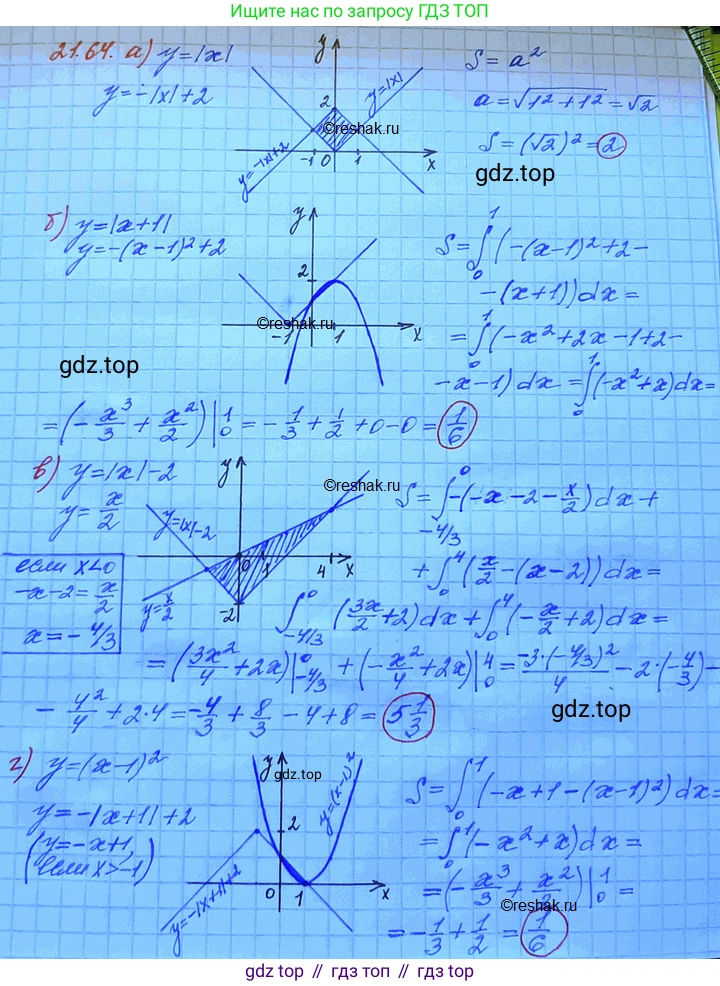 Ищите нас по запросу ГДЗ ТОП
21.64. а) y=|x|
y=-|x|+2
y
2
y=|x|
y=-|x|+2
-1 0 1 x
©reshak.ru
S=a²
a=√(1²+1²)=√2
S=(√2)²=2
gdz.top
б) y=|x+1|
y=-(x-1)²+2
y
2
-1 1 x
©reshak.ru
gdz.top
S=∫₀¹(-(x-1)²+2-
-(x+1))dx=
=∫₀¹(-x²+2x-1+2-
-x-1)dx=∫₀¹(-x²+x)dx=
=(-x³/3+x²/2)|₀¹=-1/3+1/2+0-0=1/6
в) y=|x|-2
y=x/2
y
y=|x|-2
0 1 4 x
-2
y=x/2
©reshak.ru
если x<0
-x-2=x/2
x=-4/3
S=∫₋₄/₃⁰-(-x-2-x/2)dx+
+∫₀⁴(x/2-(x-2))dx=
∫₋₄/₃⁰(3x/2+2)dx+∫₀⁴(-x/2+2)dx=
=(3x²/4+2x)|₋₄/₃⁰+(-x²/4+2x)|₀⁴=-3·(-4/3)²/4-2·(-4/3)-
-4²/4+2·4=-4/3+8/3-4+8=5 1/3
gdz.top
г) y=(x-1)²
y=-|x+1|+2
(y=-x+1,
если x>-1)
y
y=(x-1)²
2
0 1 x
y=-|x+1|+2
©reshak.ru
S=∫₀¹(-x+1-(x-1)²)dx=
=∫₀¹(-x²+x)dx=
=(-x³/3+x²/2)|₀¹=
©reshak.ru
=-1/3+1/2=1/6
gdz.top // гдз.топ // gdz.top